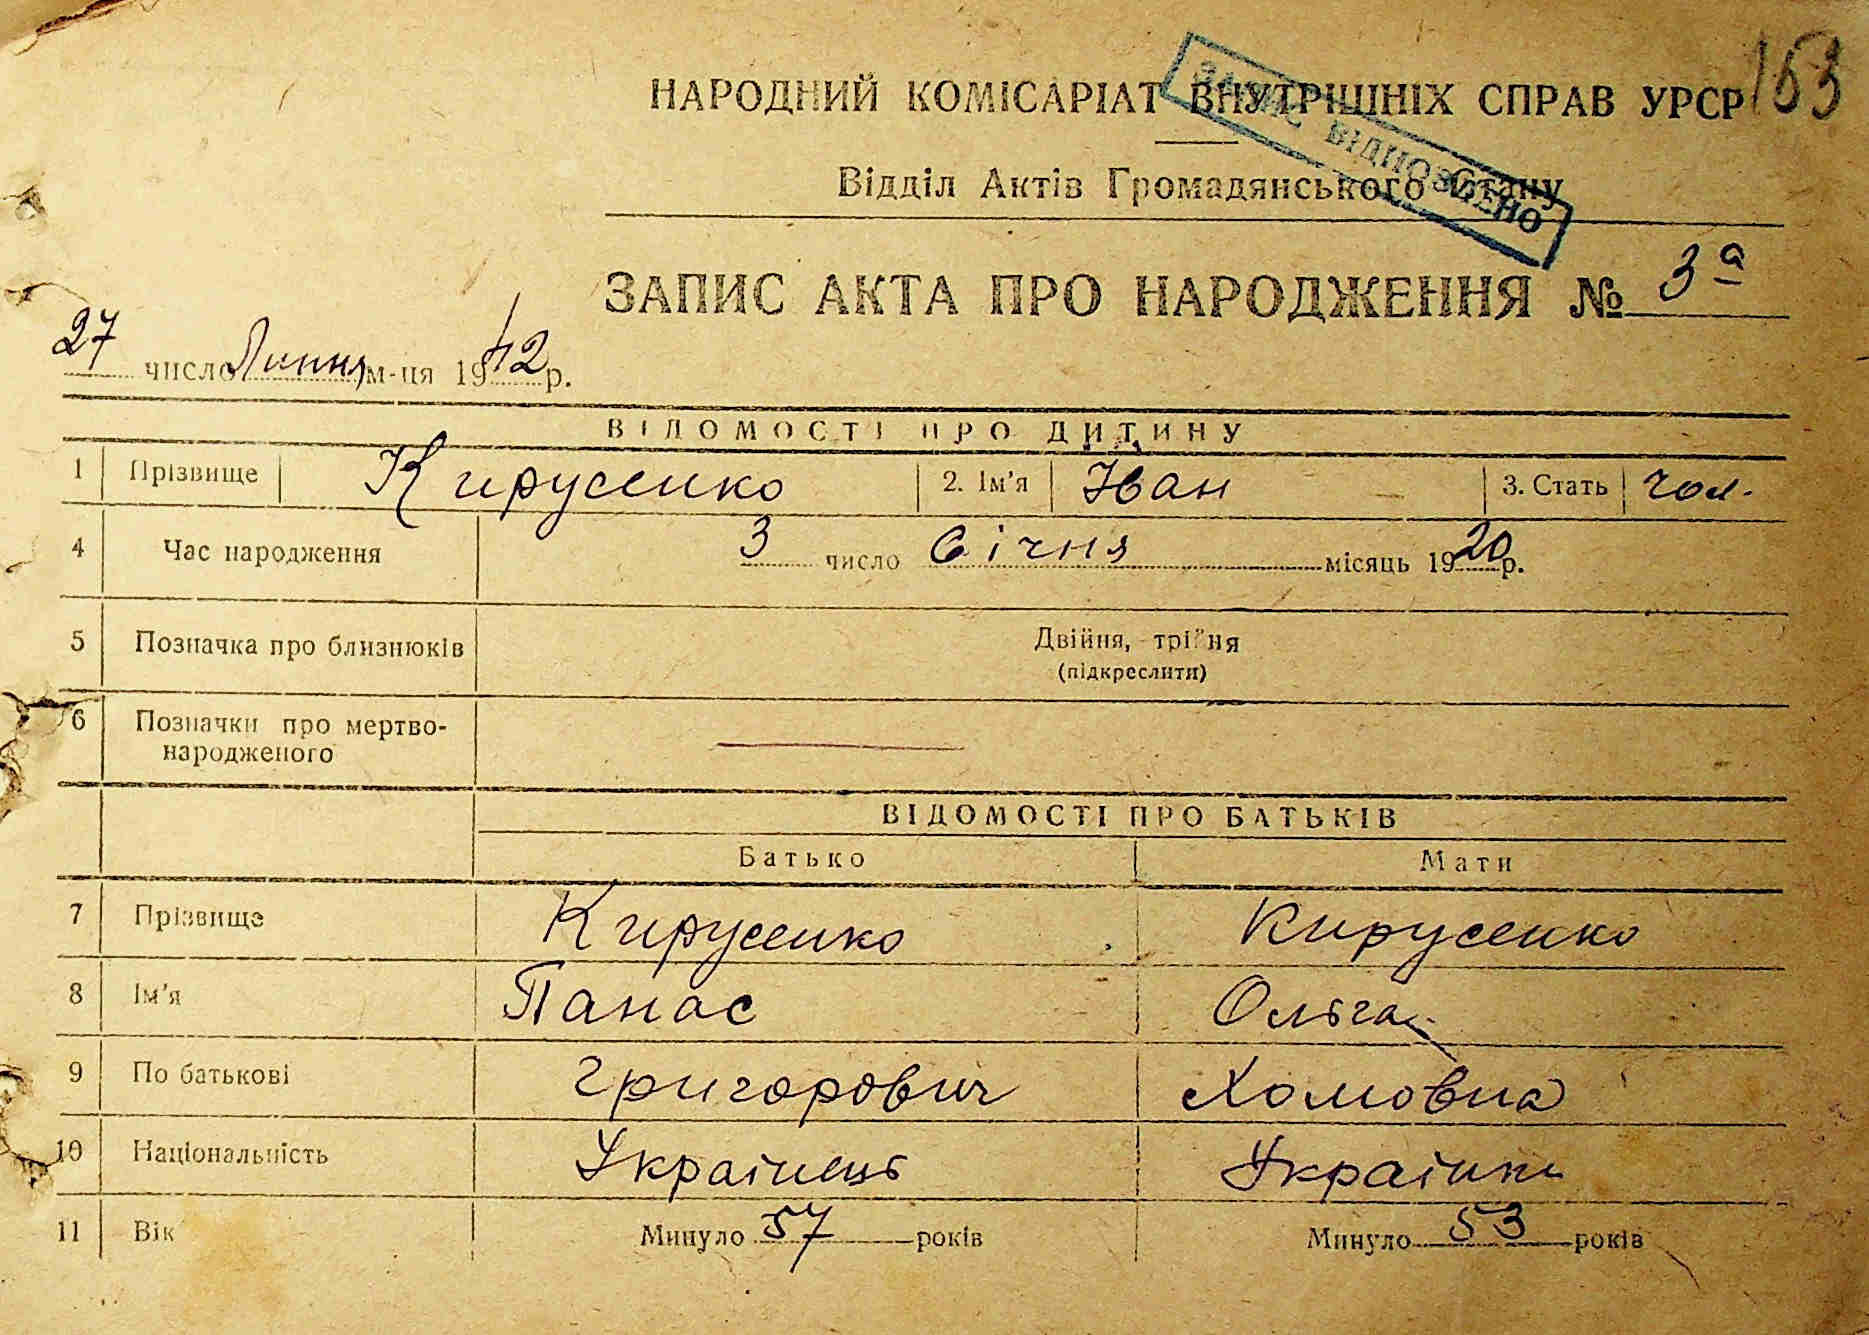 163
НАРОДНИЙ КОМІСАРІАТ ВНУТРІШНІХ СПРАВ УРСР
ЗАПИС ВІДНОВЛЕНО
Відділ Актів Громадянського Стану
ЗАПИС АКТА ПРО НАРОДЖЕННЯ № 3а
27 число Липня м-ця 1942 р.
ВІДОМОСТІ ПРО ДИТИНУ
1 Прізвище Кирусенко 2. Ім'я Іван 3. Стать чол.
4 Час народження 3 число Січня місяць 1920 р.
5 Позначка про близнюків Двійня, трійня
(підкреслити)
6 Позначки про мертво-
народженого
ВІДОМОСТІ ПРО БАТЬКІВ
Батько Мати
7 Прізвище Кирусенко Кирусенко
8 Ім'я Панас Ольга
9 По батькові Григорович Хомовна
10 Національність Українець Українка
11 Вік Минуло 57 років Минуло 53 років